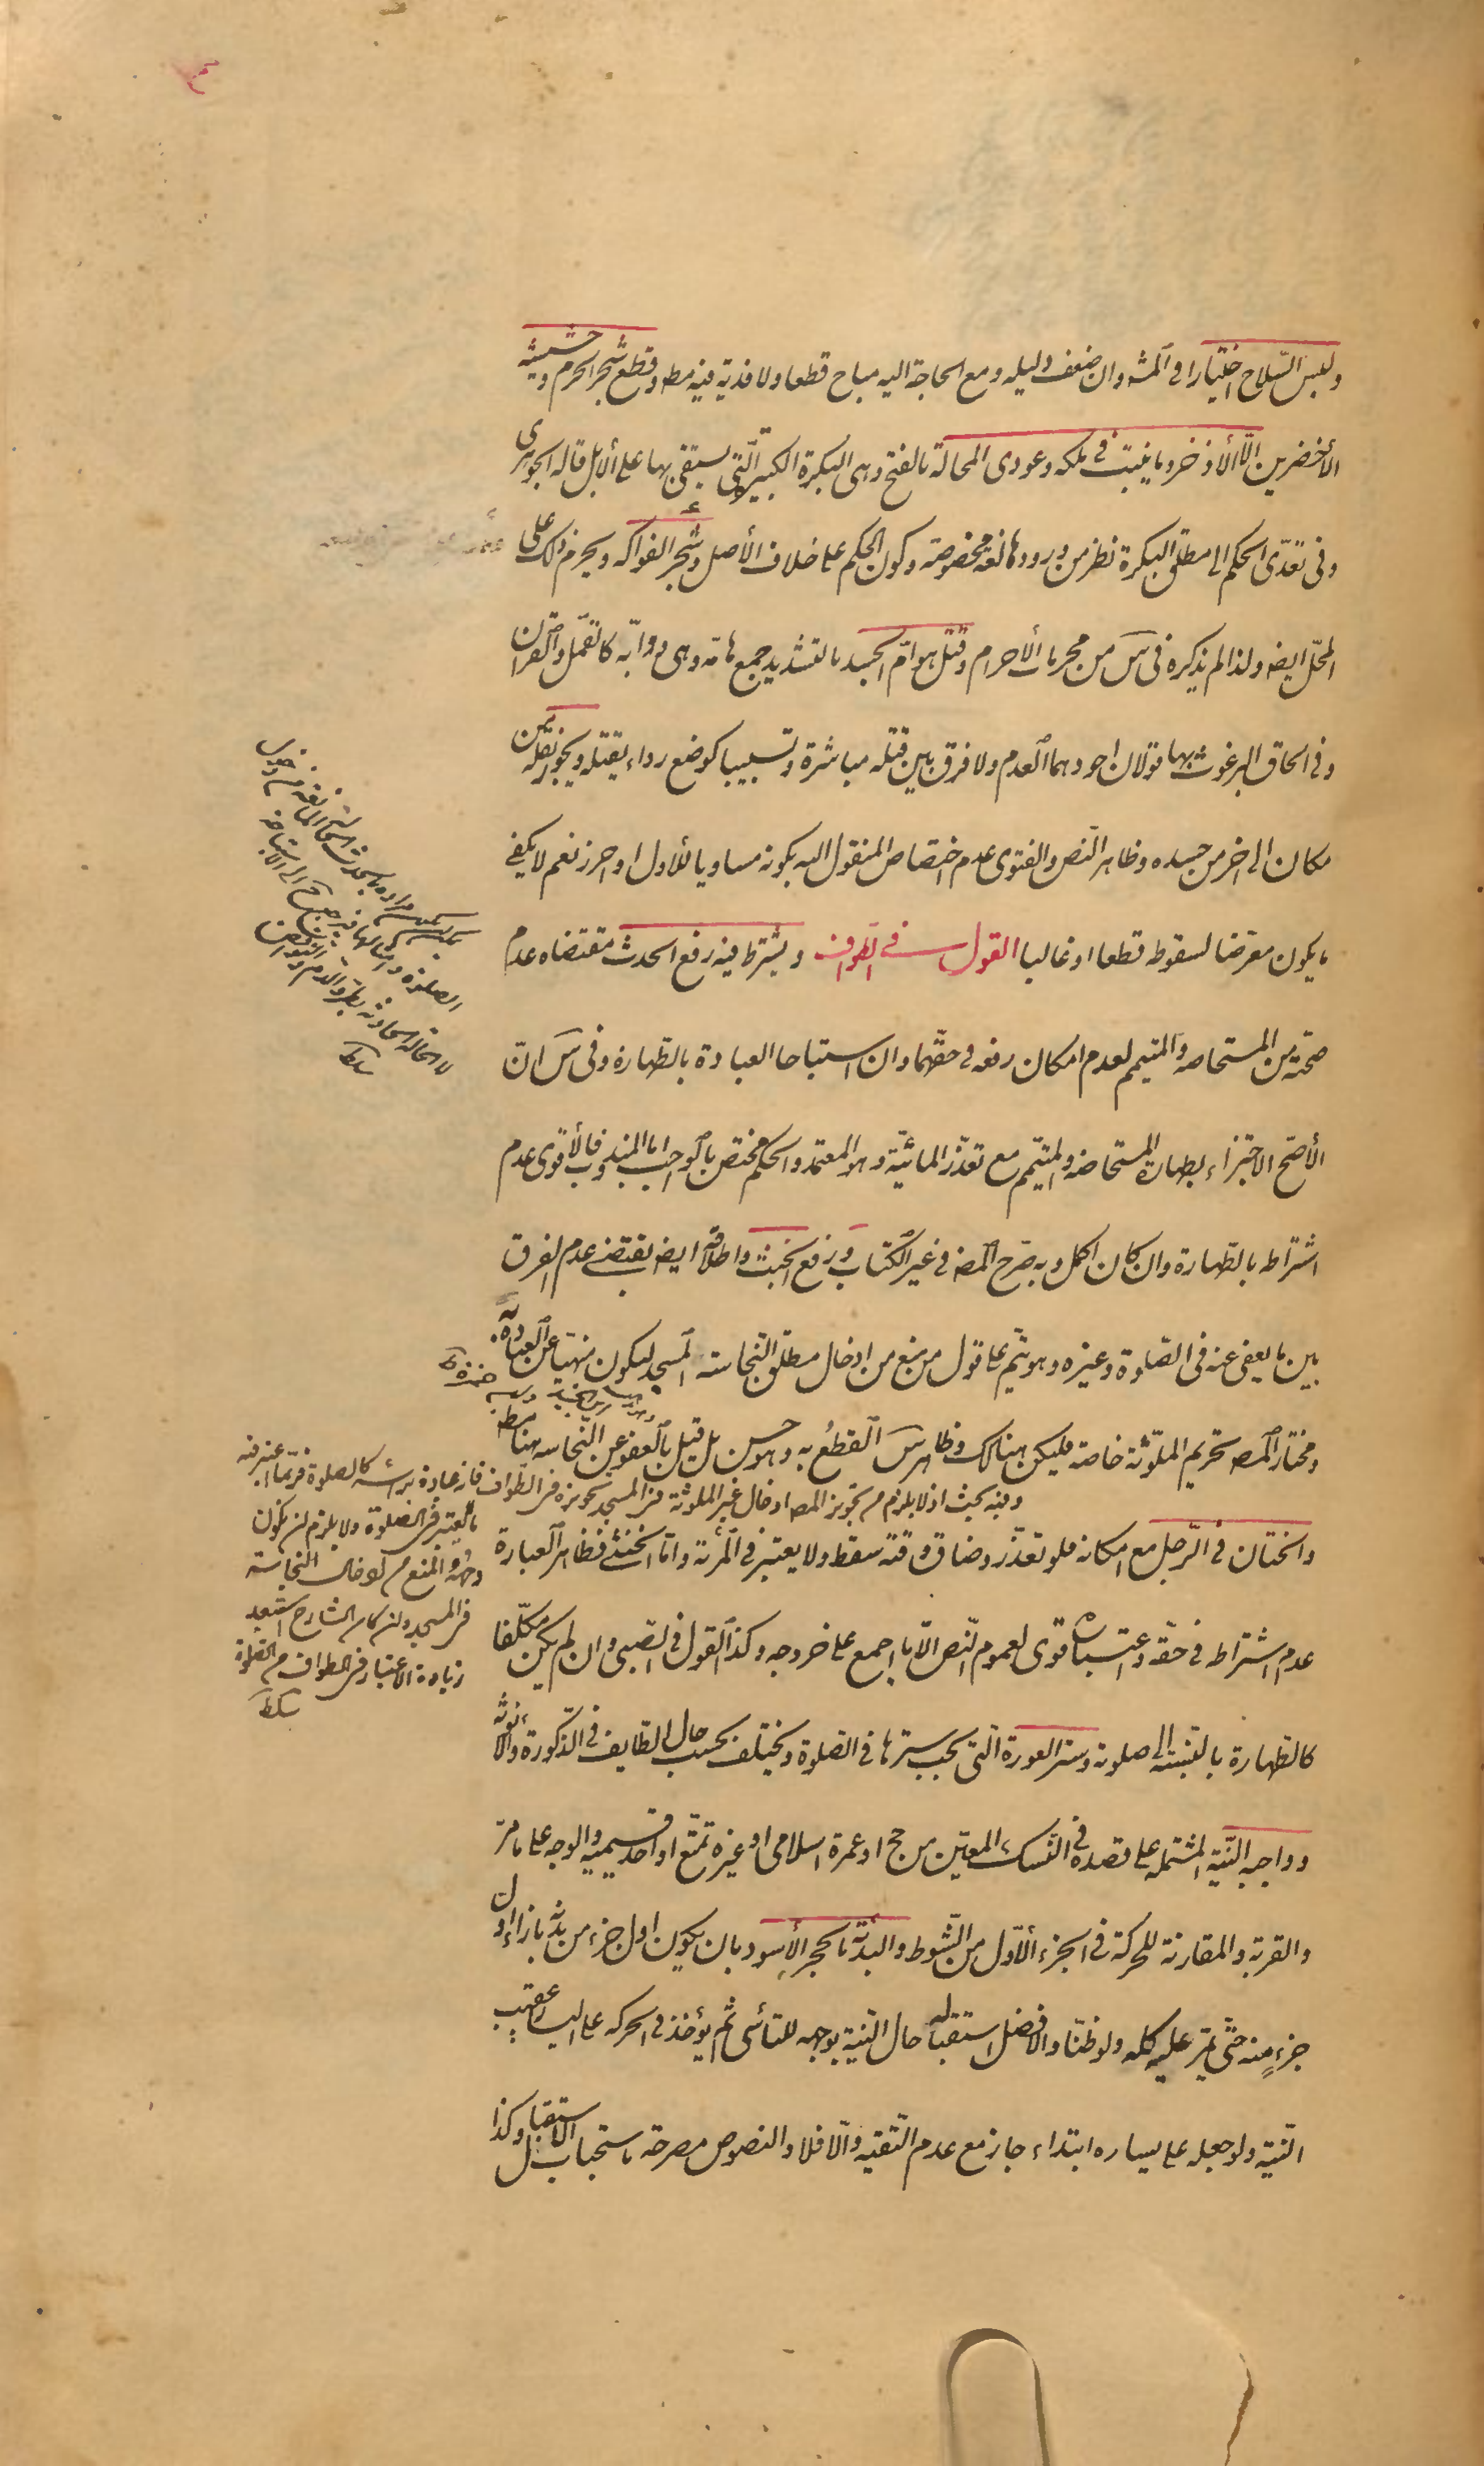 ولبس السّلاح اختيارا في المشهور وان ضعف دليله ومع الحاجة اليه مباح قطعا ولا فدية فيه مطه وقطع شجر الحرم وحشيشه
الأخضرين الّا الأذخر وما ينبت في ملكه وعودى المحالة بالفتح وهى البكرة الكبيرة الّتى يستقى بها على الأبل قاله الجوهرى
وفى تعدّى الحكم الى مطلق البكرة نظر من ورودها لغة مخصوصة وكون الحكم على خلاف الأصل وشجر الفواكه ويحرم ذلك على
المحلّ ايضه ولذا لم يذكره فى س من محرمات الأحرام وقتل هوامّ الجسد بالتشديد جمع هامّه وهى دوابّه كالقمل والقراد
وفى الحاق البرغوث بها قولان اجودهما العدم ولا فرق بين قتله مباشرة وتسبيبا كوضع دواء يقتله ويجوز نقله من
مكان الى اخر من جسده وظاهر النّص والفتوى عدم اختصاص المنقول اليه بكونه مساويا للأول او احرز نعم لا يكفى
ما يكون معرضا لسقوطه قطعا او غالبا القول في الطواف ويشترط فيه رفع الحدث مقتضاه عدم
صحّته من المستحاضه والمتيمم لعدم امكان رفعه في حقّهما وان استباحا العبادة بالطّهارة وفى س انّ
الأصحّ الاجتزاء بطهارة المستحاضه والمتيمّم مع تعذّر المائيّة وهو المعتمد والحكم مختص بالواجب اما المندوب فالأقوى عدم
اشتراطه بالطّهارة وان كان اكمل وبه صرّح المصه في غير الكتاب ورفع الخبث واطلاقه ايضه يقتضى عدم الفرق
بين ما يعفى عنه في الصّلوة وغيره وهو يتمّ على قول من منع من ادخال مطلق النّجاسة المسجد ليكون منهيّا عن العبادة به
ومختار المصه تحريم الملوّثة خاصة فليكن هنالك وظاهر س القطع به وهو حسن بل قيل بالعفو عن النّجاسه هنا مطه
والختان في الرّجل مع امكانه فلو تعذّر وضاق وقته سقط ولا يعتبر في المرئة وامّا الخنثى فظاهر العبارة
عدم اشتراطه في حقّه واعتباره قوى لعموم النّص الّا ما اجمع على خروجه وكذا القول في الصّبى وان لم يكن مكلّفا
كالطهارة بالنّسبته الى صلوته وستر العورة الّتى يجب سترها في الصّلوة ويختلف بحسب حال الطّايف في الذّكورة والأنوثة
وواجبه النّية المشتمله على قصده في النّسك المعيّن من حج او عمرة اسلامى او غيره تمتّع او احد قسيميه والوجه على ما مرّ
والقربة والمقارنة للحركة في الجزء الأوّل من الشّوط والبدئة بالحجر الأسود بان يكون اول جزء من بدنه بازاء اول
جزء منه حتّى يمرّ عليه كله ولو ظنّا والأفضل استقباله حال النّية بوجهه للتأسّى ثمّ يؤخذ في الحركه على اليسار عقيب
النّية ولو جعله على يساره ابتداء جاز مع عدم التّقيّه والّا فلا والنصوص مصرحة باستحباب الاستقبال وكذا
وفيه بحث اذ لا يلزم من تجويز المصه ادخال غير الملوثة في المسجد تجويزه في الطواف فانه عبادة برأسه كالصلوة فربما اعتبر فيه
ما يعتبر في الصلوة ولا يلزم ان يكون
وجهه المنع من ادخال النجاسة
في المسجد وان كان الشارح استبعد
زيادة الاعتبار في الطواف من الصلوة